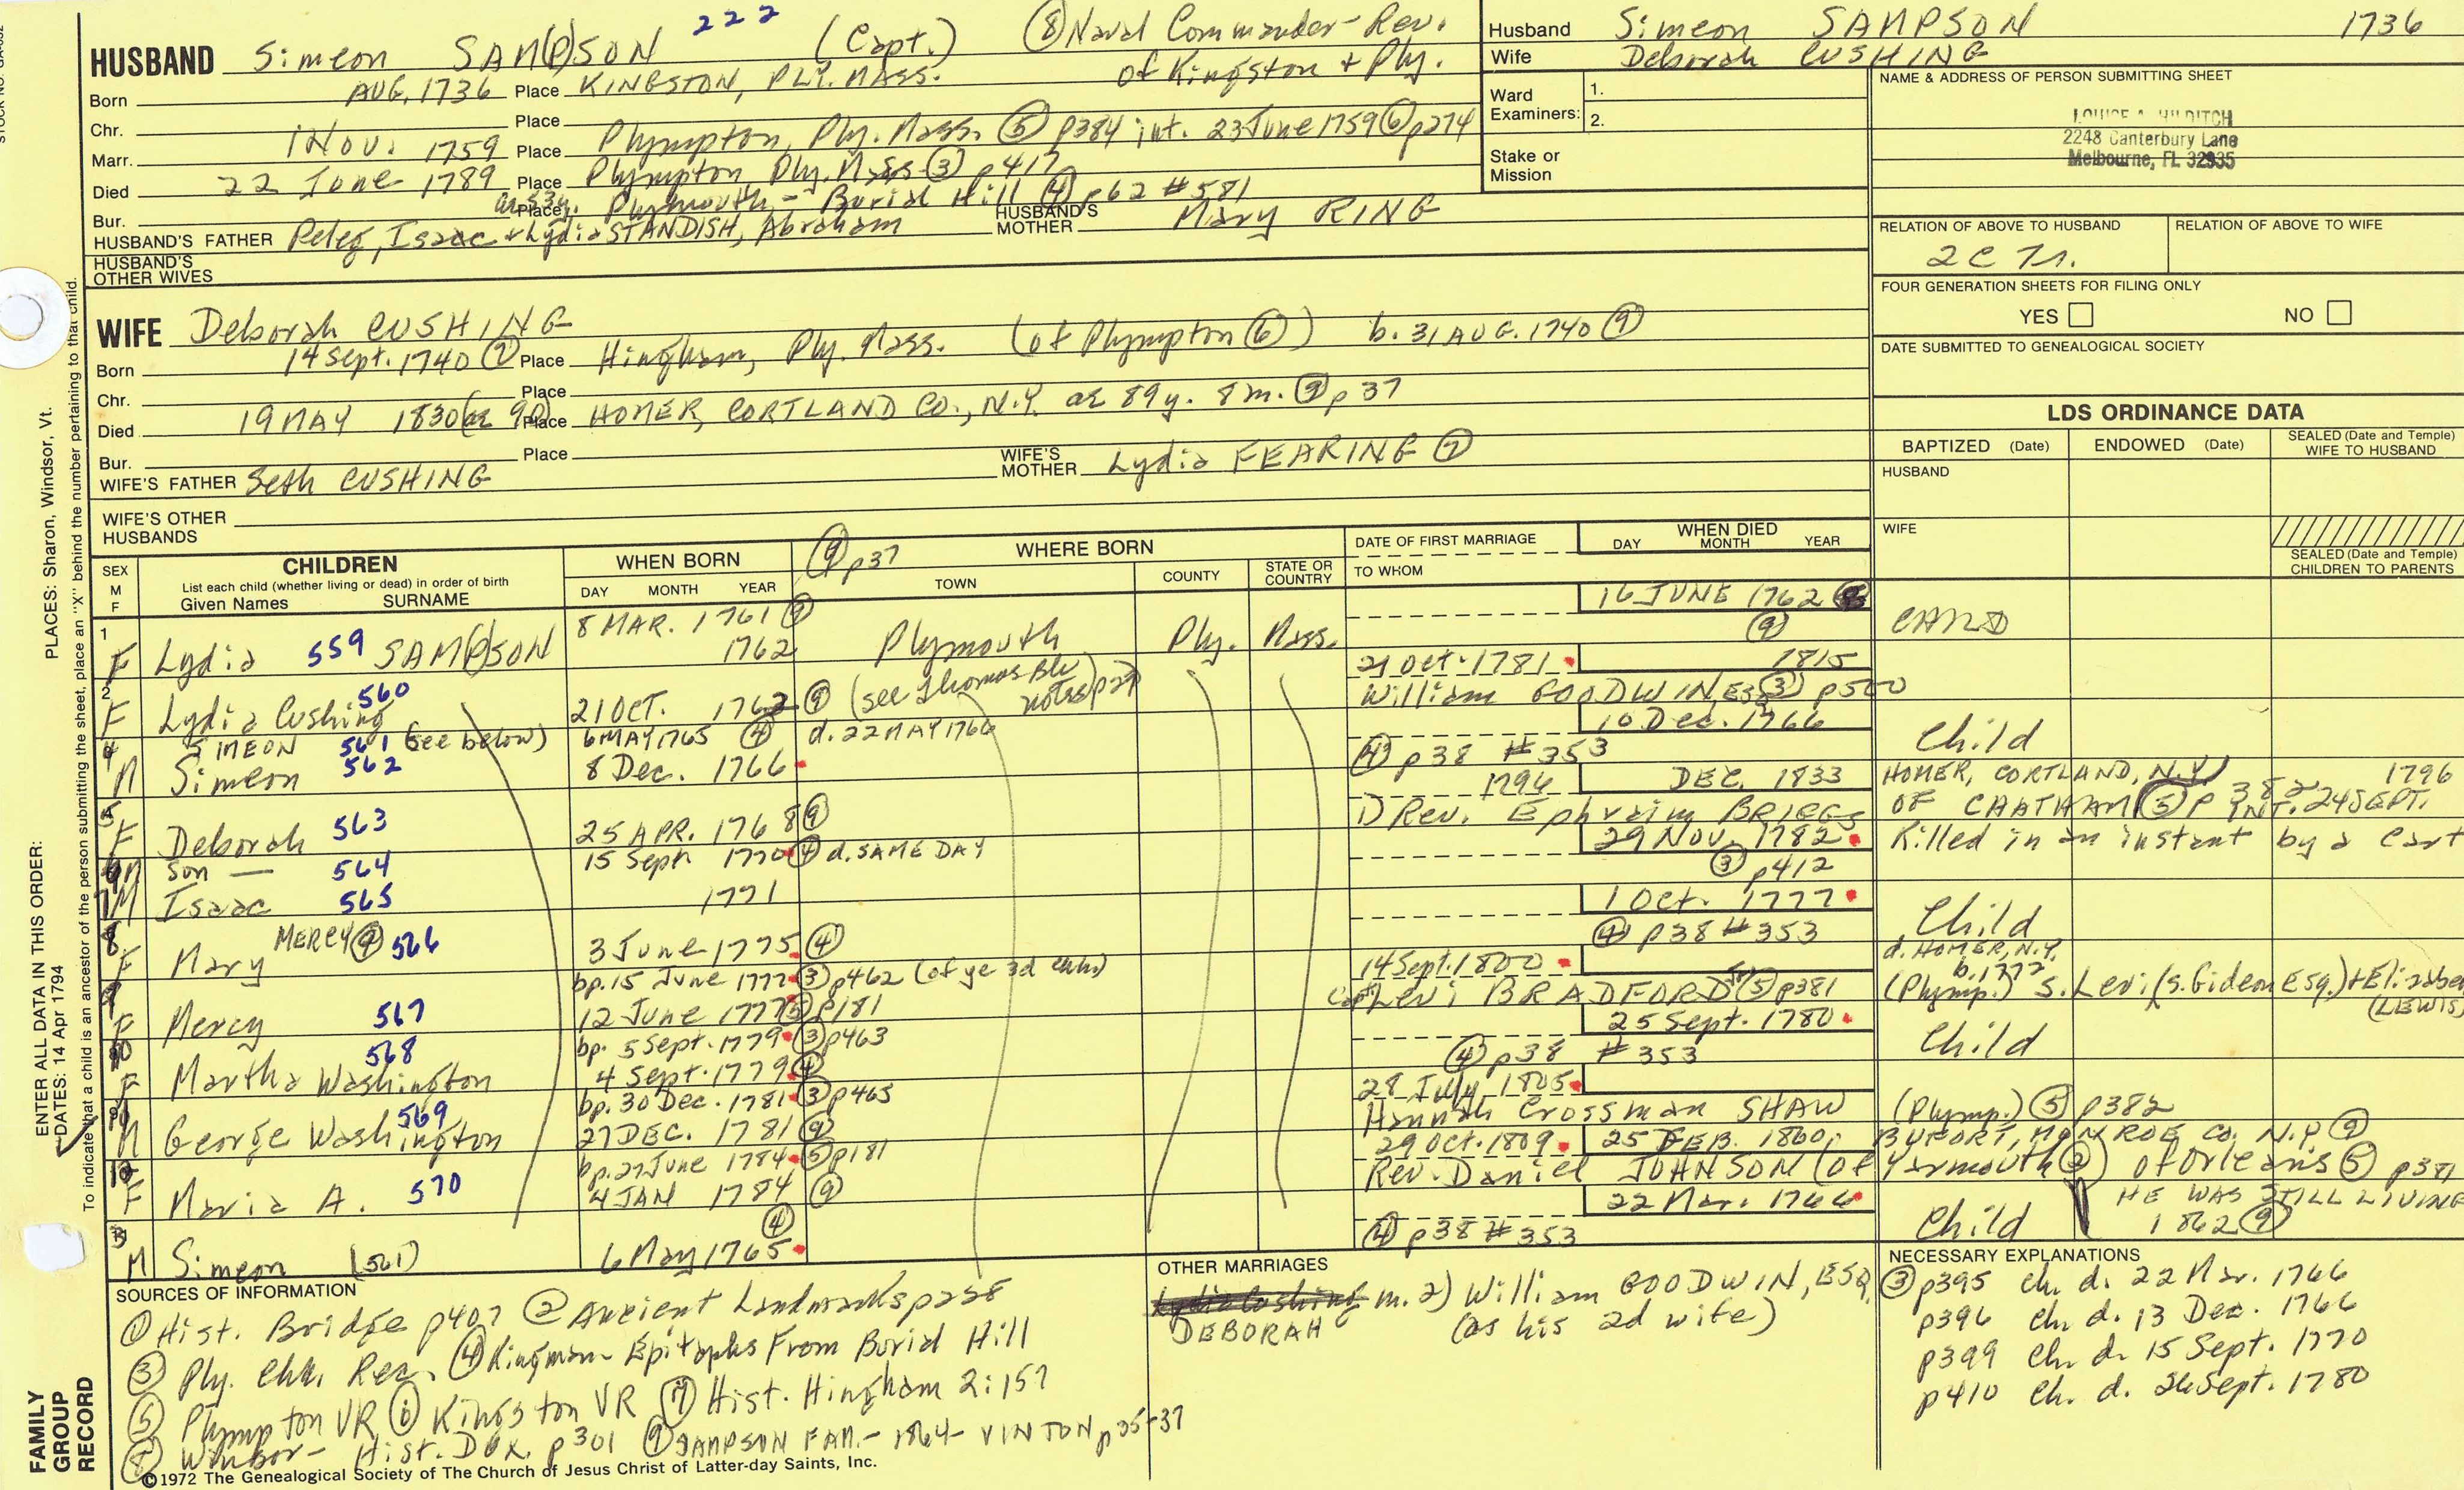 HUSBAND Simeon SAM(P)SON 222 (Capt.) ⑧ Naval Commander - Rev. of Kingston + Ply.
Born AUG. 1736 Place KINGSTON, PLY. MASS.
Chr. Place
Marr. 1 Nov. 1759 Place Plympton, Ply. Mass. ⑤ p384 int. 23 June 1759 ⑥ p274
Died 22 June 1789 Place Plympton Ply. Mass ③ p417
Bur. ae 53y. Place Plymouth - Burial Hill ④ p62 #581
HUSBAND'S FATHER Peleg, Isaac + Lydia STANDISH, Abraham HUSBAND'S MOTHER Mary RING
HUSBAND'S OTHER WIVES
Husband Simeon SAMPSON 1736
Wife Deborah CUSHING
Ward Examiners: 1.
2.
Stake or Mission
NAME & ADDRESS OF PERSON SUBMITTING SHEET
LOUISE A. HILDITCH
2248 Canterbury Lane
Melbourne, FL 32935
RELATION OF ABOVE TO HUSBAND
RELATION OF ABOVE TO WIFE
FOUR GENERATION SHEETS FOR FILING ONLY
YES NO
DATE SUBMITTED TO GENEALOGICAL SOCIETY
WIFE Deborah CUSHING
Born 14 Sept. 1740 ⑦ Place Hingham, Ply. Mass. (of Plympton ⑥) b. 31 AUG. 1740 ⑨
Chr. Place
Died 19 MAY 1830 (ae 90) Place HOMER, CORTLAND CO., N.Y. ae 89y. 8m. ⑨ p37
Bur. Place
WIFE'S FATHER Seth CUSHING WIFE'S MOTHER Lydia FEARING ⑦
WIFE'S OTHER HUSBANDS
LDS ORDINANCE DATA
BAPTIZED (Date) ENDOWED (Date) SEALED (Date and Temple) WIFE TO HUSBAND
HUSBAND
WIFE
SEALED (Date and Temple) CHILDREN TO PARENTS
SEX M F
CHILDREN
List each child (whether living or dead) in order of birth
Given Names SURNAME
WHEN BORN
DAY MONTH YEAR
⑨ p37 WHERE BORN
TOWN COUNTY STATE OR COUNTRY
DATE OF FIRST MARRIAGE
TO WHOM
WHEN DIED
DAY MONTH YEAR
1 8 MAR. 1761 ⑨ 16 JUNE 1762
F Lydia 559 SAM(P)SON 1762 Plymouth Ply. Mass. ⑨
2 560 21 Oct. 1781 1815
F Lydia Cushing 21 OCT. 1762 ⑨ (see Thomas Blu notes) p27 William GOODWIN, Esq ③ p500
4 SIMEON 561 (see below) 6 MAY 1765 ④ d. 22 MAY 1766 10 Dec. 1766 Child
M Simeon 562 8 Dec. 1766 ④ p38 #353
5 1796 DEC. 1833 HOMER, CORTLAND, N.Y. 1796
F Deborah 563 25 APR. 1768 ⑨ 1) Rev. Ephraim BRIGGS OF CHATHAM ⑤ p382 INT. 24 SEPT.
M son — 564 15 Sept 1770 ④ d. SAME DAY 29 Nov. 1782 Killed in an instant by a cart
7 M Isaac 565 1771 ③ p412
8 MERCY ⑨ 566 1 Oct. 1777 Child
F Mary 3 June 1775 ④ ④ p38 #353
bp. 15 June 1777 ③ p462 (of ye 3d chh.) 14 Sept. 1800 d. HOMER, N.Y. b. 1772
F Mercy 567 12 June 1777 ⑤ p181 Capt Levi BRADFORD ⑤ p381 (Plymp.) s. Levi (s. Gideon Esq.) +
(LEWIS)
568 bp. 5 Sept. 1779 ③ p463 25 Sept. 1780 Child
F Martha Washington 4 Sept. 1779 ④ ④ p38 #353
569 bp. 30 Dec. 1781 ③ p465 28 July 1805
M George Washington 27 DEC. 1781 ⑨ Hannah Crossman SHAW (Plymp.) ⑤ p382
bp. 27 June 1784 ⑤ p181 29 Oct. 1809 25 FEB. 1860
F Maria A. 570 4 JAN 1784 ⑨ Rev. Daniel JOHNSON (of Yarmouth ②) of Orleans ⑤ p381
④ 22 Mar. 1766 Child HE WAS STILL LIVING 1862 ⑨
M Simeon (561) 6 May 1765 ④ p38 #353
SOURCES OF INFORMATION
① Hist. Bridge p407 ② Ancient Landmarks p228
③ Ply. Chh. Rec. ④ Kingman - Epitaphs From Burial Hill
⑤ Plympton VR ⑥ Kingston VR ⑦ Hist. Hingham 2:157
⑧ Winsor - Hist. DUX. p301 ⑨ SAMPSON FAM. - 1864 - VINTON p35-37
©1972 The Genealogical Society of The Church of Jesus Christ of Latter-day Saints, Inc.
OTHER MARRIAGES
DEBORAH m. 2) William GOODWIN, ESQ.
(as his 2d wife)
NECESSARY EXPLANATIONS
③ p395 ch. d. 22 Mar. 1766
p396 ch. d. 13 Dec. 1766
p399 ch. d. 15 Sept. 1770
p410 ch. d. 26 Sept. 1780
ENTER ALL DATA IN THIS ORDER:
PLACES: Sharon, Windsor, Vt.
DATES: 14 Apr 1794
To indicate that a child is an ancestor of the person submitting the sheet, place an "X" behind the number pertaining to that child.
FAMILY GROUP RECORD